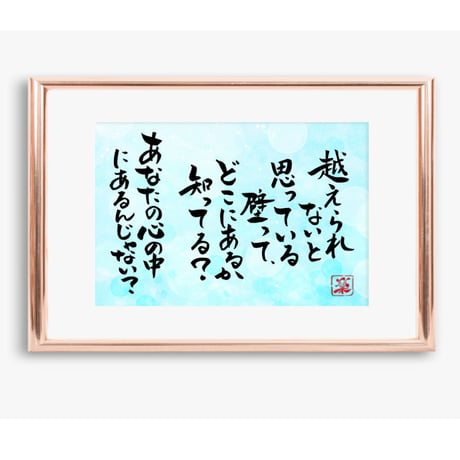 越えられ
ないと
思っている
壁って、
どこにあるか
知ってる？
あなたの心の中
にあるんじゃない？